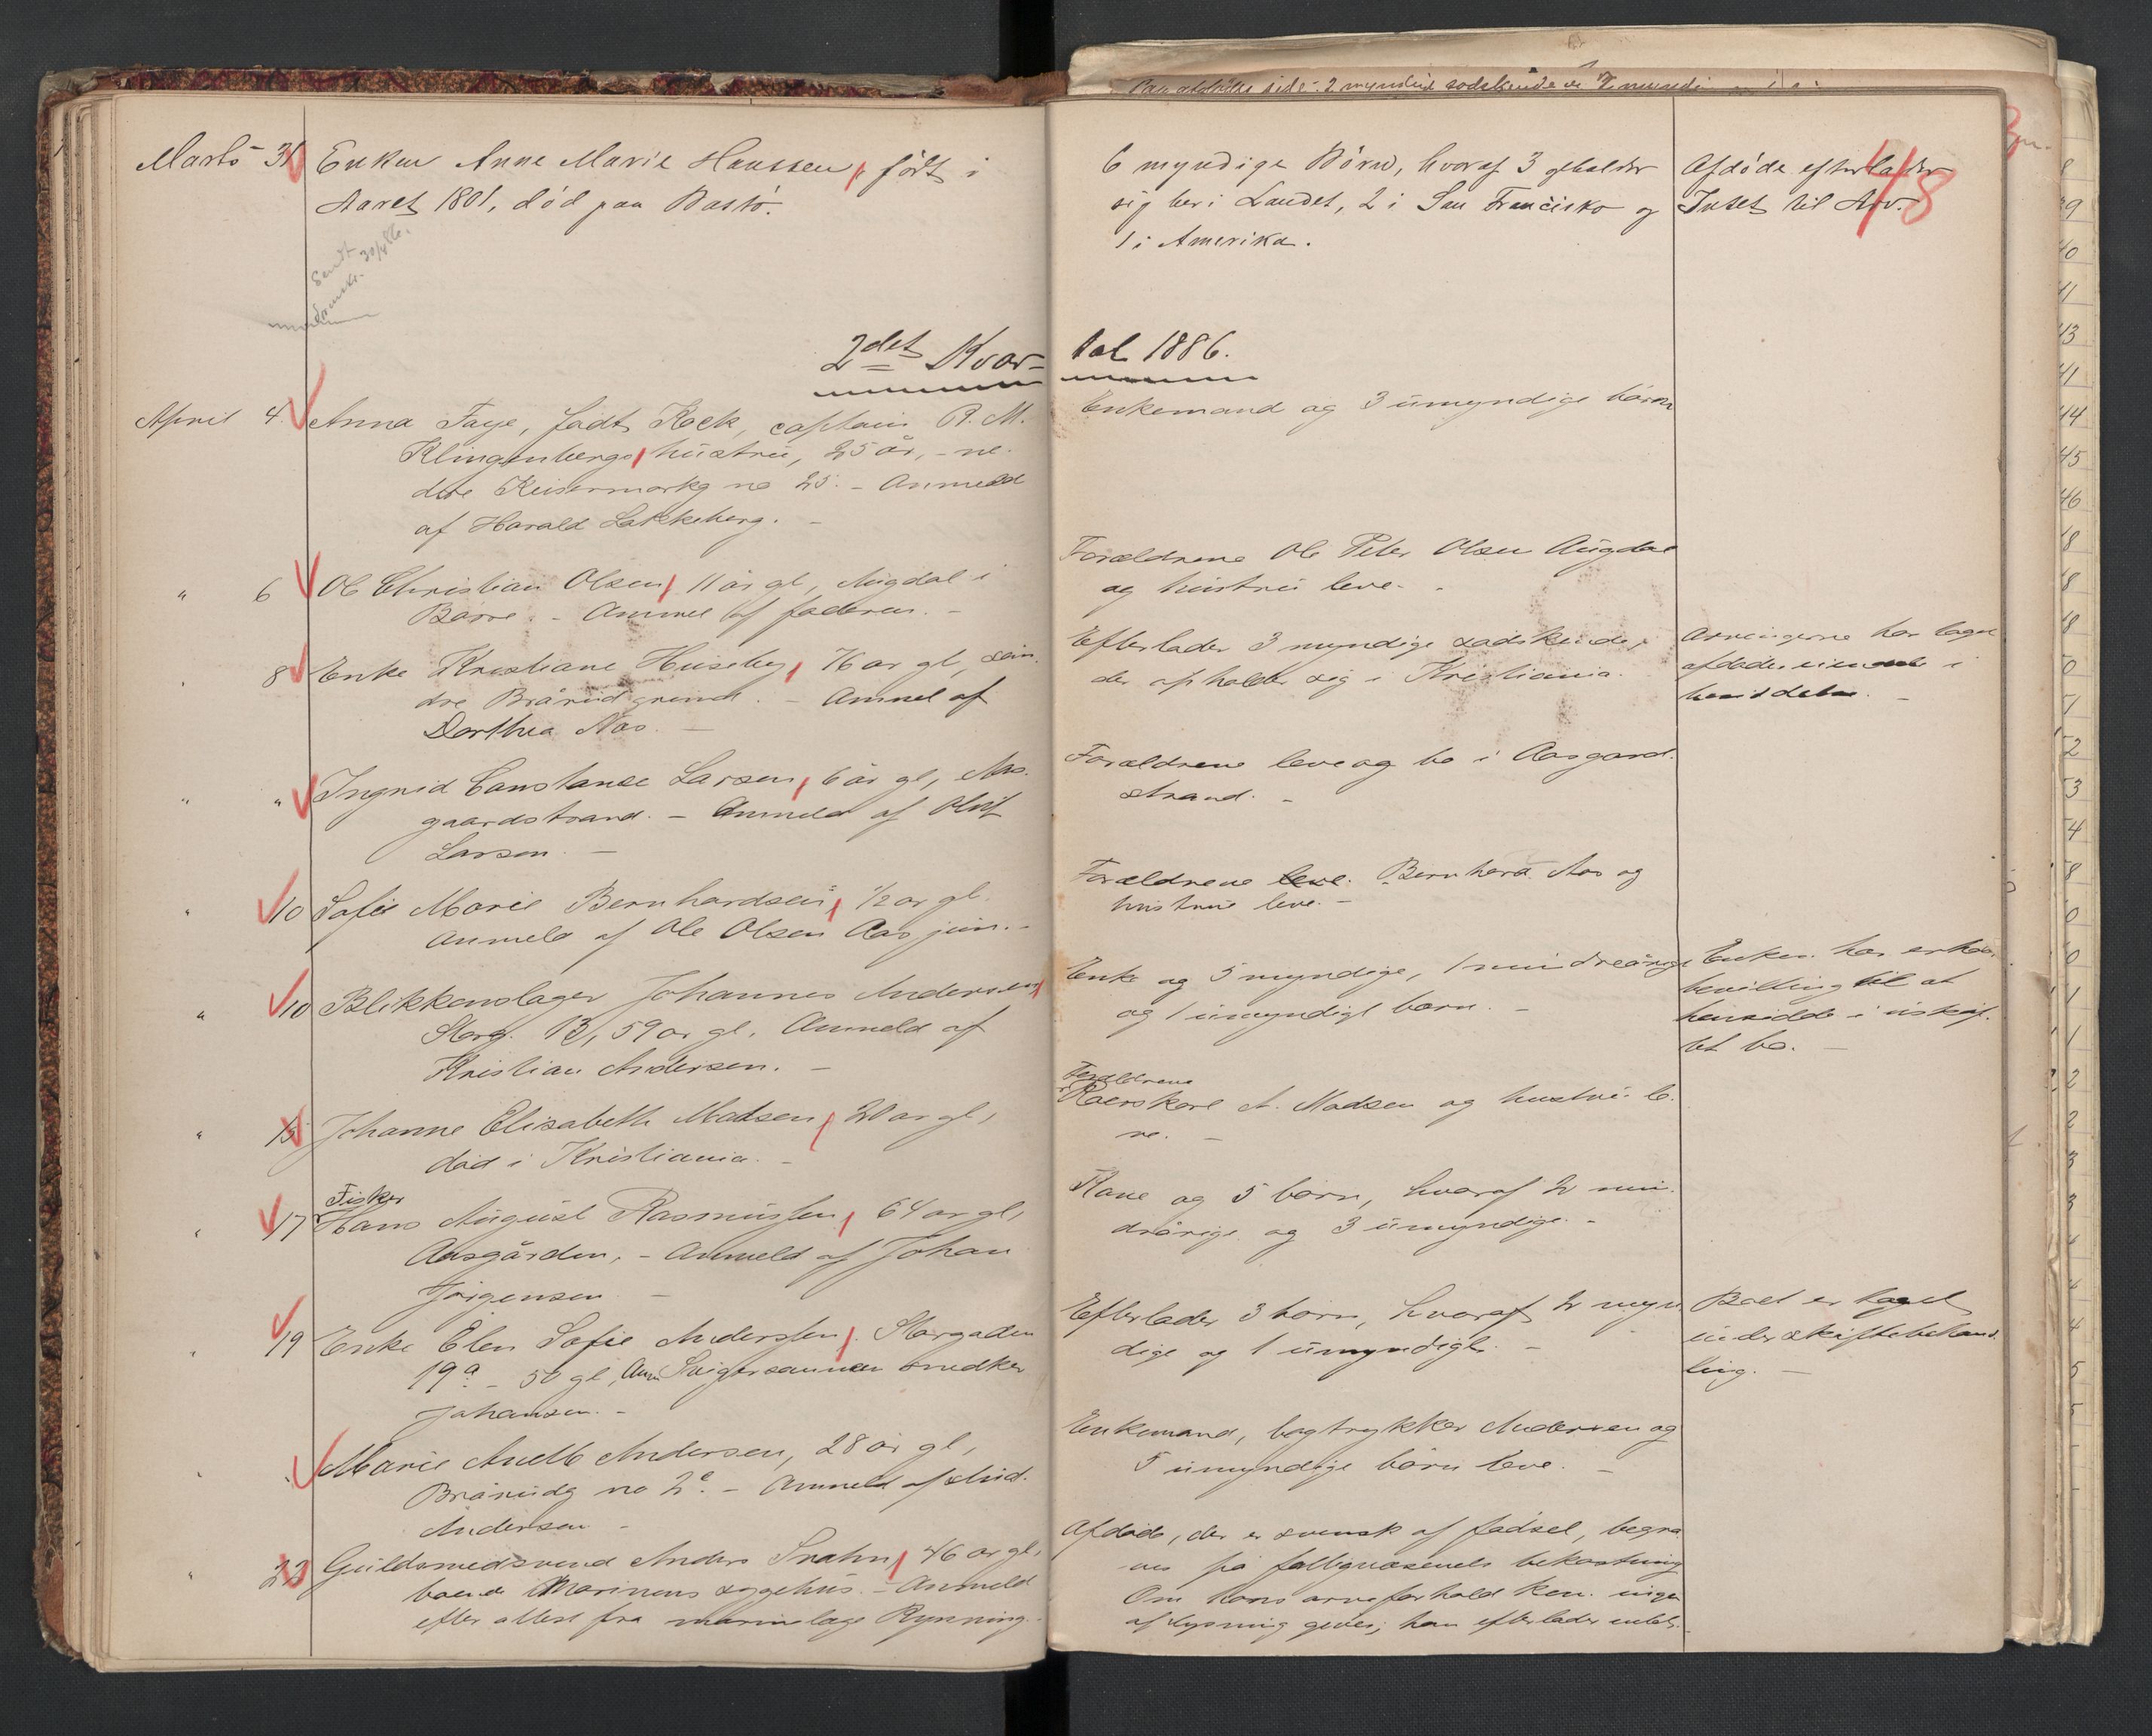 48
Marts 31 Enken Anne Marie Hanssen, født i
Aaret 1801, død paa Bastø.
Sendt
30/4 86.
6 myndige Børn, hvoraf 3 opholder
sig her i Landet, 2 i San Francisko og
1 i Amerika.
Afdøde efterlader
Intet til Arv.
2det Kvar-
tal 1886.
April 4. Anna Faye, født Kock, captain R. M.
Klingenbergs hüstrü, 25 år, - ne-
dre Keisermarkg no 25. - Anmeld
af Harald Lakkeberg. -
Enkemand og 3 ümyndige børn
" 6 Ole Christian Olsen, 11 år gl, Augdal i
Borre. - Anmel af faderen. -
Forældrene Ole Peter Olsen Aügdal
og hüstrü leve. -
" 8 Enke Kristiane Hüseby, 76 år gl, søn-
dre Brårüdgründ. - Anmel af
Dorthea Aas. -
Efterlader 3 myndige sødskende,
der opholder sig i Kristiania.
Arvingerne har taget
afdødes i
" " Ingrid Constance Larsen, 6 år gl, Aas-
gaardstrand. - Anmeld af Olüf
Larsen. -
Forældrene leve og bo i Aasgaard-
strand. -
" 10 Sofie Marie Bernhardsen, 1/2 år gl.
Anmeld af Ole Olsen Aas jün. -
Forældrene leve. Bernhard Aas og
hüstrü leve. -
" 10 Blikkenslager Johannes Andersen,
Storg. 13, 59 år gl. Anmeld af
Kristian Andersen. -
Enke og 5 myndige, 1 mindreårig
og 1 ümyndigt barn. -
Enken har erhol.
bevilling til at
hensidde i üskif-
tet bo. -
" 15 Johanne Elisabeth Madsen, 20 år gl,
død i Kristiania. -
Forældrene
Koerskarl A. Madsen og hustrü le-
ve. -
" 17 Fisker
Hans Aügüst Rasmüssen, 64 år gl,
Aasgården, - Anmeld af Johan
Jørgensen -
Kone og 5 børn, hvoraf 2 min-
drårige og 3 ümyndige. -
" 19 Enke Elen Sofie Anderssen, Storgaden
19a - 50 gl, Anm Svigersønnen snedker
Johansen. -
Efterlader 3 børn, hvoraf 2 myn-
dige og 1 ümyndigt. -
Boet er taget
ünder skiftebehand-
ling. -
" " Marie Andersen, 28 år gl,
Brårüdg no 2c. - Anmeld af Aüd.
Andersen -
Enkemand, bogtrykker Andersen og
5 ümyndige børn leve. -
" 22 Güldsmedsvend Anders Svahn, 46 år gl,
boende Marinens sygehüs. - Anmeld
efter attest fra marinelæge Rynning. -
Afdøde, der er svensk af fødsel, begra-
ves på fattigvæsenets bekostning
Om hans arveforhold kan ingen
oplysning gives; han efterlader intet.